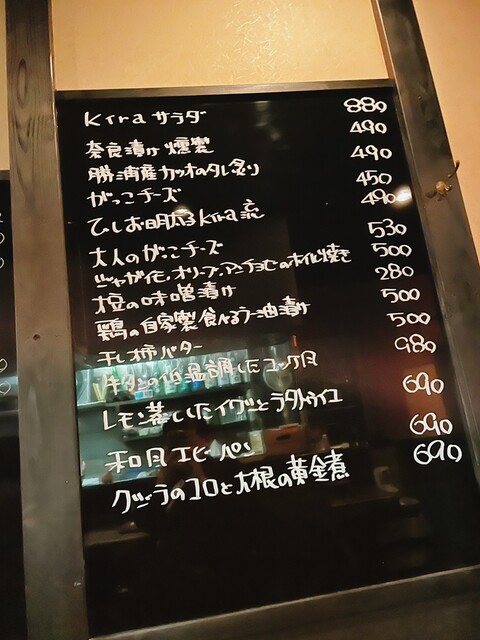 kiraサラダ 880
奈良漬け燻製 490
勝浦産カツオのタレ炙り 490
がっこチーズ 450
ひしお明太子kira流 490
大人のがっこチーズ 530
ジャガイモ、オリーブ、アンチョビのホイル焼き 500
の味噌漬け 280
鶏の自家製食べるラー油漬け 500
干し柿バター 500
牛タンの低温調したユッケ風 980
レモン蒸ししたイワシとラタトゥイユ 690
和風エビパン 690
クジラのコロと大根の黄金煮 690